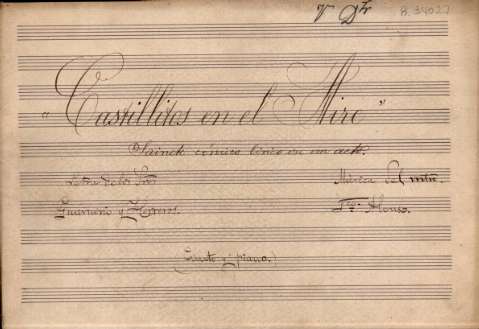 V Dtr R. 34027
"Castillitos en el Aire"
Sainete cómico lírico en un acto.
Letra de los Sres Música del mtro.
Guerrero y Fco. Alonso.
(Canto y piano.)